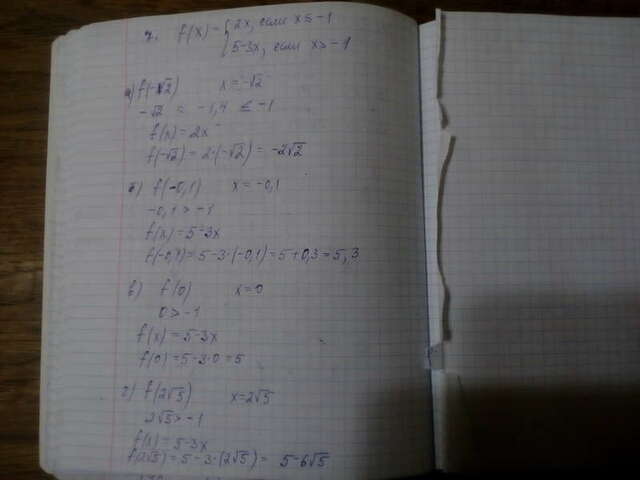 7. f(x) = { 2x, если x ≤ -1
5-3x, если x > -1
а) f(-√2) x = -√2
-√2 = -1,4 ≤ -1
f(x) = 2x
f(-√2) = 2·(-√2) = -2√2
б) f(-0,1) x = -0,1
-0,1 > -1
f(x) = 5-3x
f(-0,1) = 5-3·(-0,1) = 5+0,3 = 5,3
в) f(0) x = 0
0 > -1
f(x) = 5-3x
f(0) = 5-3·0 = 5
г) f(2√5) x = 2√5
2√5 > -1
f(x) = 5-3x
f(2√5) = 5-3·(2√5) = 5-6√5